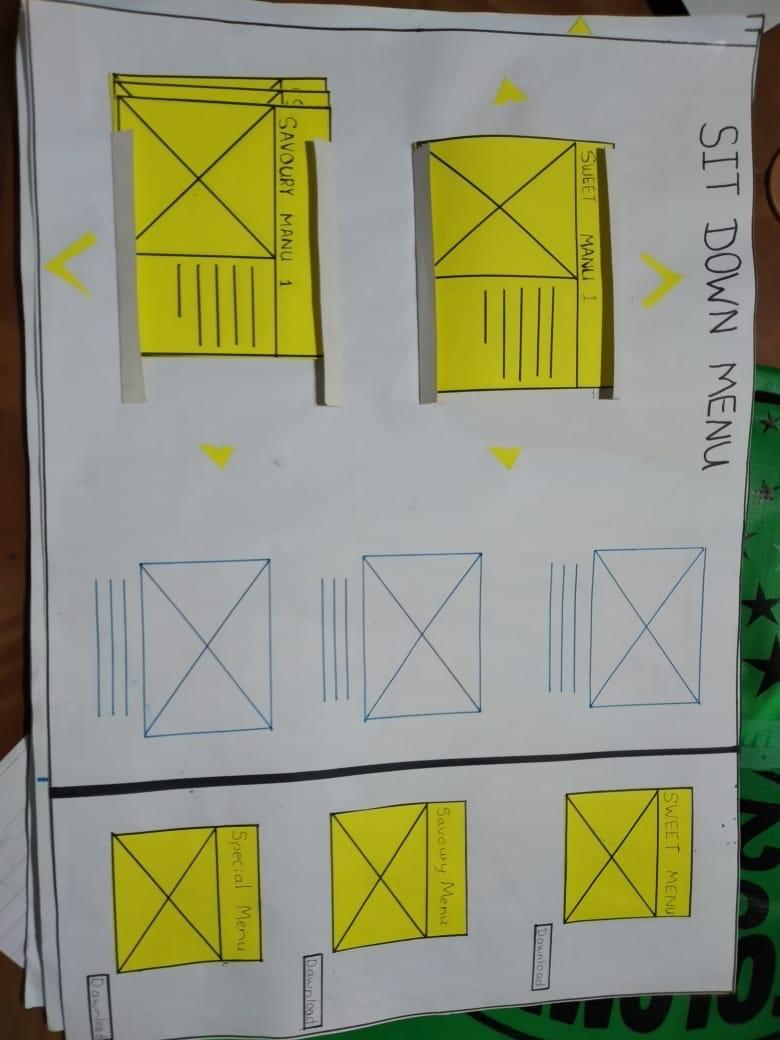 SIT DOWN MENU
SWEET MANU 1
SAVOURY MANU 1
SWEET MENU
Download
Savoury Menu
Download
Special Menu
Download